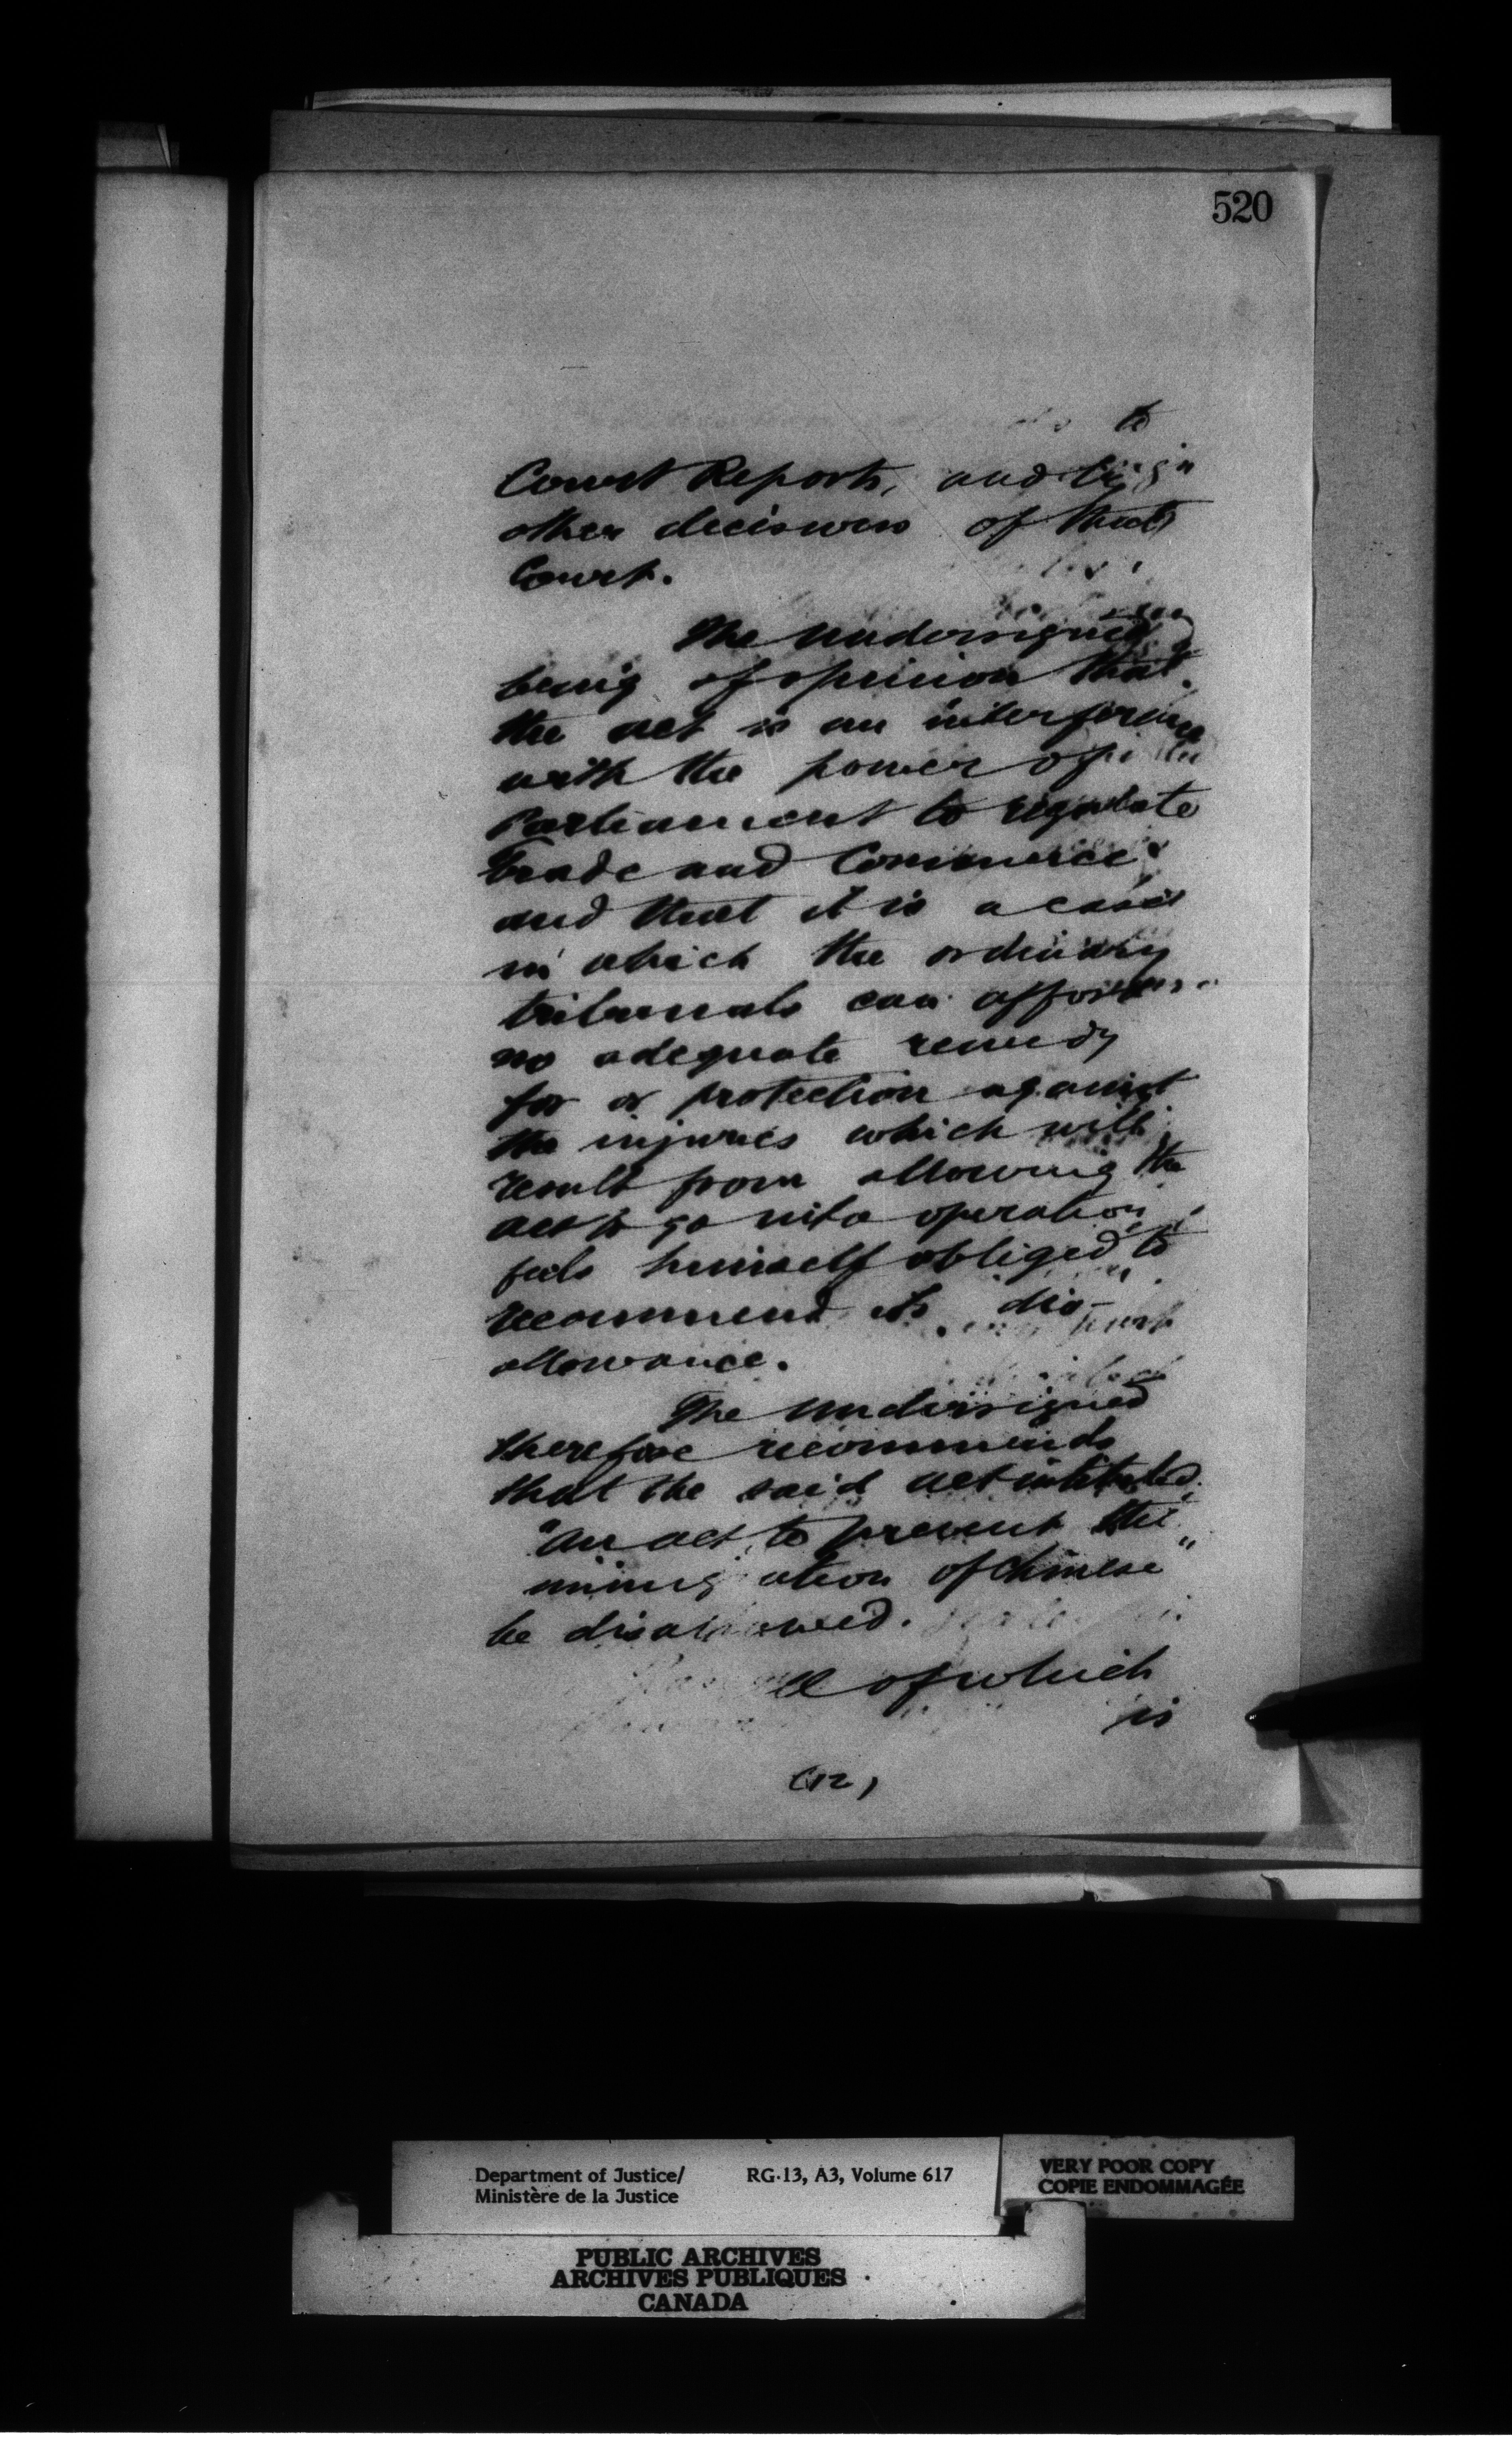 520
to
Court Reports, and by
other decisions of that
Court.
The undersigned
being of opinion that
the act is an interference
with the power of
Parliament to regulate
Trade and Commerce
and that it is a case
in which the ordinary
tribunals can afford
no adequate remedy
for or protection against
the injuries which will
result from allowing the
act to go into operation,
feels himself obliged to
recommend its dis-
allowance.
The undersigned
therefore recommends
that the said act intituled
"An act to prevent the
immigration of Chinese"
be disallowed.
All of which
is
(12)
Department of Justice/ RG·13, A3, Volume 617
Ministère de la Justice
VERY POOR COPY
COPIE ENDOMMAGÉE
PUBLIC ARCHIVES
ARCHIVES PUBLIQUES
CANADA